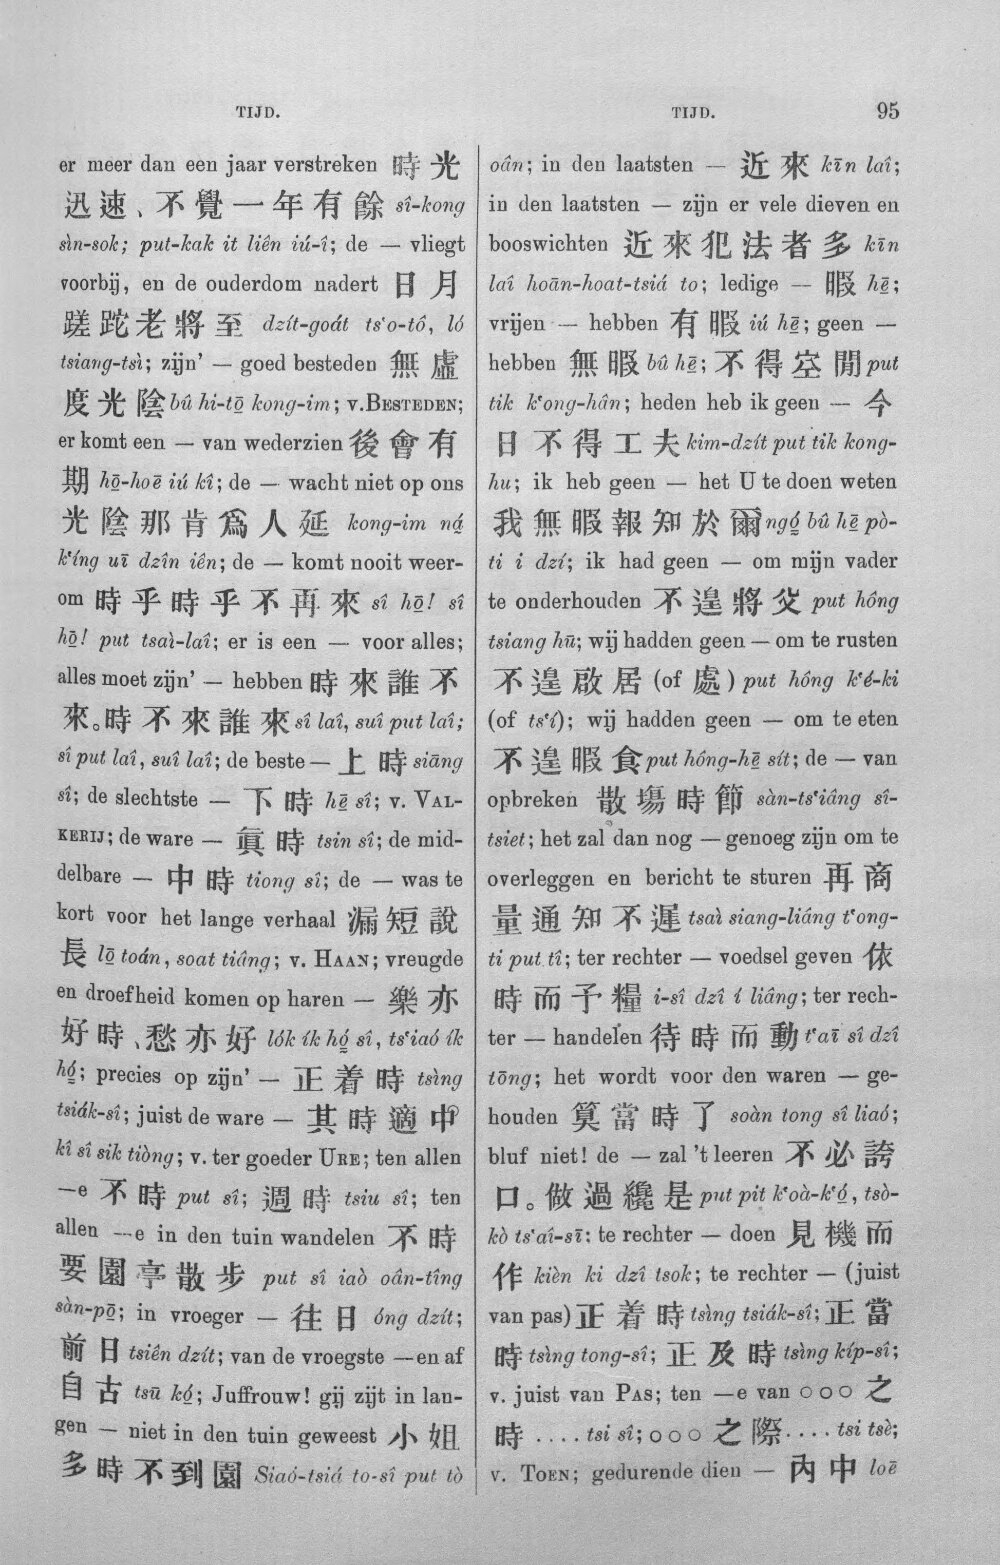 TIJD.
er meer dan een jaar verstreken 時光
迅速、不覺一年有餘 sî-kong
sìn-sok; put-kak it liên iú-î; de — vliegt
voorbij, en de ouderdom nadert 日月
蹉跎老將至 dzít-goát ts‘o-tô, ló
tsiang-tsì; zijn’ — goed besteden 無虛
度光陰 bû hi-tō̲ kong-im; v. BESTEDEN;
er komt een — van wederzien 後會有
期 hō̲-hoē iú kî; de — wacht niet op ons
光陰那肯爲人延 kong-im ná̲
k‘íng uī dzîn iên; de — komt nooit weer-
om 時乎時乎不再來 sî hō̲! sî
hō̲! put tsaì-laî; er is een — voor alles;
alles moet zijn’ — hebben 時來誰不
來。時不來誰來 sî laî, suî put laî;
sî put laî, suî laî; de beste — 上時 siāng
sî; de slechtste — 下時 hē̲ sî; v. VAL-
KERIJ; de ware — 眞時 tsin sî; de mid-
delbare — 中時 tiong sî; de — was te
kort voor het lange verhaal 漏短說
長 lō̲ toán, soat tiâng; v. HAAN; vreugde
en droefheid komen op haren — 樂亦
好時、愁亦好 lók ík hó̲ sî, ts‘iaó ík
hó̲; precies op zijn’ — 正着時 tsìng
tsiák-sî; juist de ware — 其時適中
kî sî sik tiòng; v. ter goeder URE; ten allen
—e 不時 put sî; 週時 tsiu sî; ten
allen —e in den tuin wandelen 不時
要園亭散步 put sî iaò oân-tîng
sàn-pō̲; in vroeger — 往日 óng dzít;
前日 tsiên dzít; van de vroegste —en af
自古 tsū kó̲; Juffrouw! gij zijt in lan-
gen — niet in den tuin geweest 小姐
多時不到園 Siaó-tsiá to-sî put tò
TIJD. 95
oân; in den laatsten — 近來 kīn laî;
in den laatsten — zijn er vele dieven en
booswichten 近來犯法者多 kīn
laî hoān-hoat-tsiá to; ledige — 暇 hē̲;
vrijen — hebben 有暇 iú hē̲; geen —
hebben 無暇 bû hē̲; 不得空閒 put
tik k‘ong-hân; heden heb ik geen — 今
日不得工夫 kim-dzít put tik kong-
hu; ik heb geen — het U te doen weten
我無暇報知於爾 ngó̲ bû hē̲ pò-
ti i dzí; ik had geen — om mijn vader
te onderhouden 不遑將父 put hông
tsiang hū; wij hadden geen — om te rusten
不遑啟居 (of 處) put hông k‘é-ki
(of ts‘í); wij hadden geen — om te eten
不遑暇食 put hông-hē̲ sít; de — van
opbreken 散塲時節 sàn-ts‘iâng sî-
tsiet; het zal dan nog — genoeg zijn om te
overleggen en bericht te sturen 再商
量通知不遲 tsaì siang-liáng t‘ong-
ti put tî; ter rechter — voedsel geven 依
時而予糧 i-sî dzî í liâng; ter rech-
ter — handelen 待時而動 t‘aī sî dzî
tōng; het wordt voor den waren — ge-
houden 算當時了 soàn tong sî liaó;
bluf niet! de — zal ’t leeren 不必誇
口。做過纔是 put pit k‘oà-k‘ó̲, tsò-
kò ts‘aî-sī; te rechter — doen 見機而
作 kièn ki dzî tsok; te rechter — (juist
van pas) 正着時 tsìng tsiák-sî; 正當
時 tsìng tong-sî; 正及時 tsìng kíp-sî;
v. juist van PAS; ten —e van ○○○之
時 .... tsi sî; ○○○之際 .... tsi tsè;
v. TOEN; gedurende dien — 內中 loē